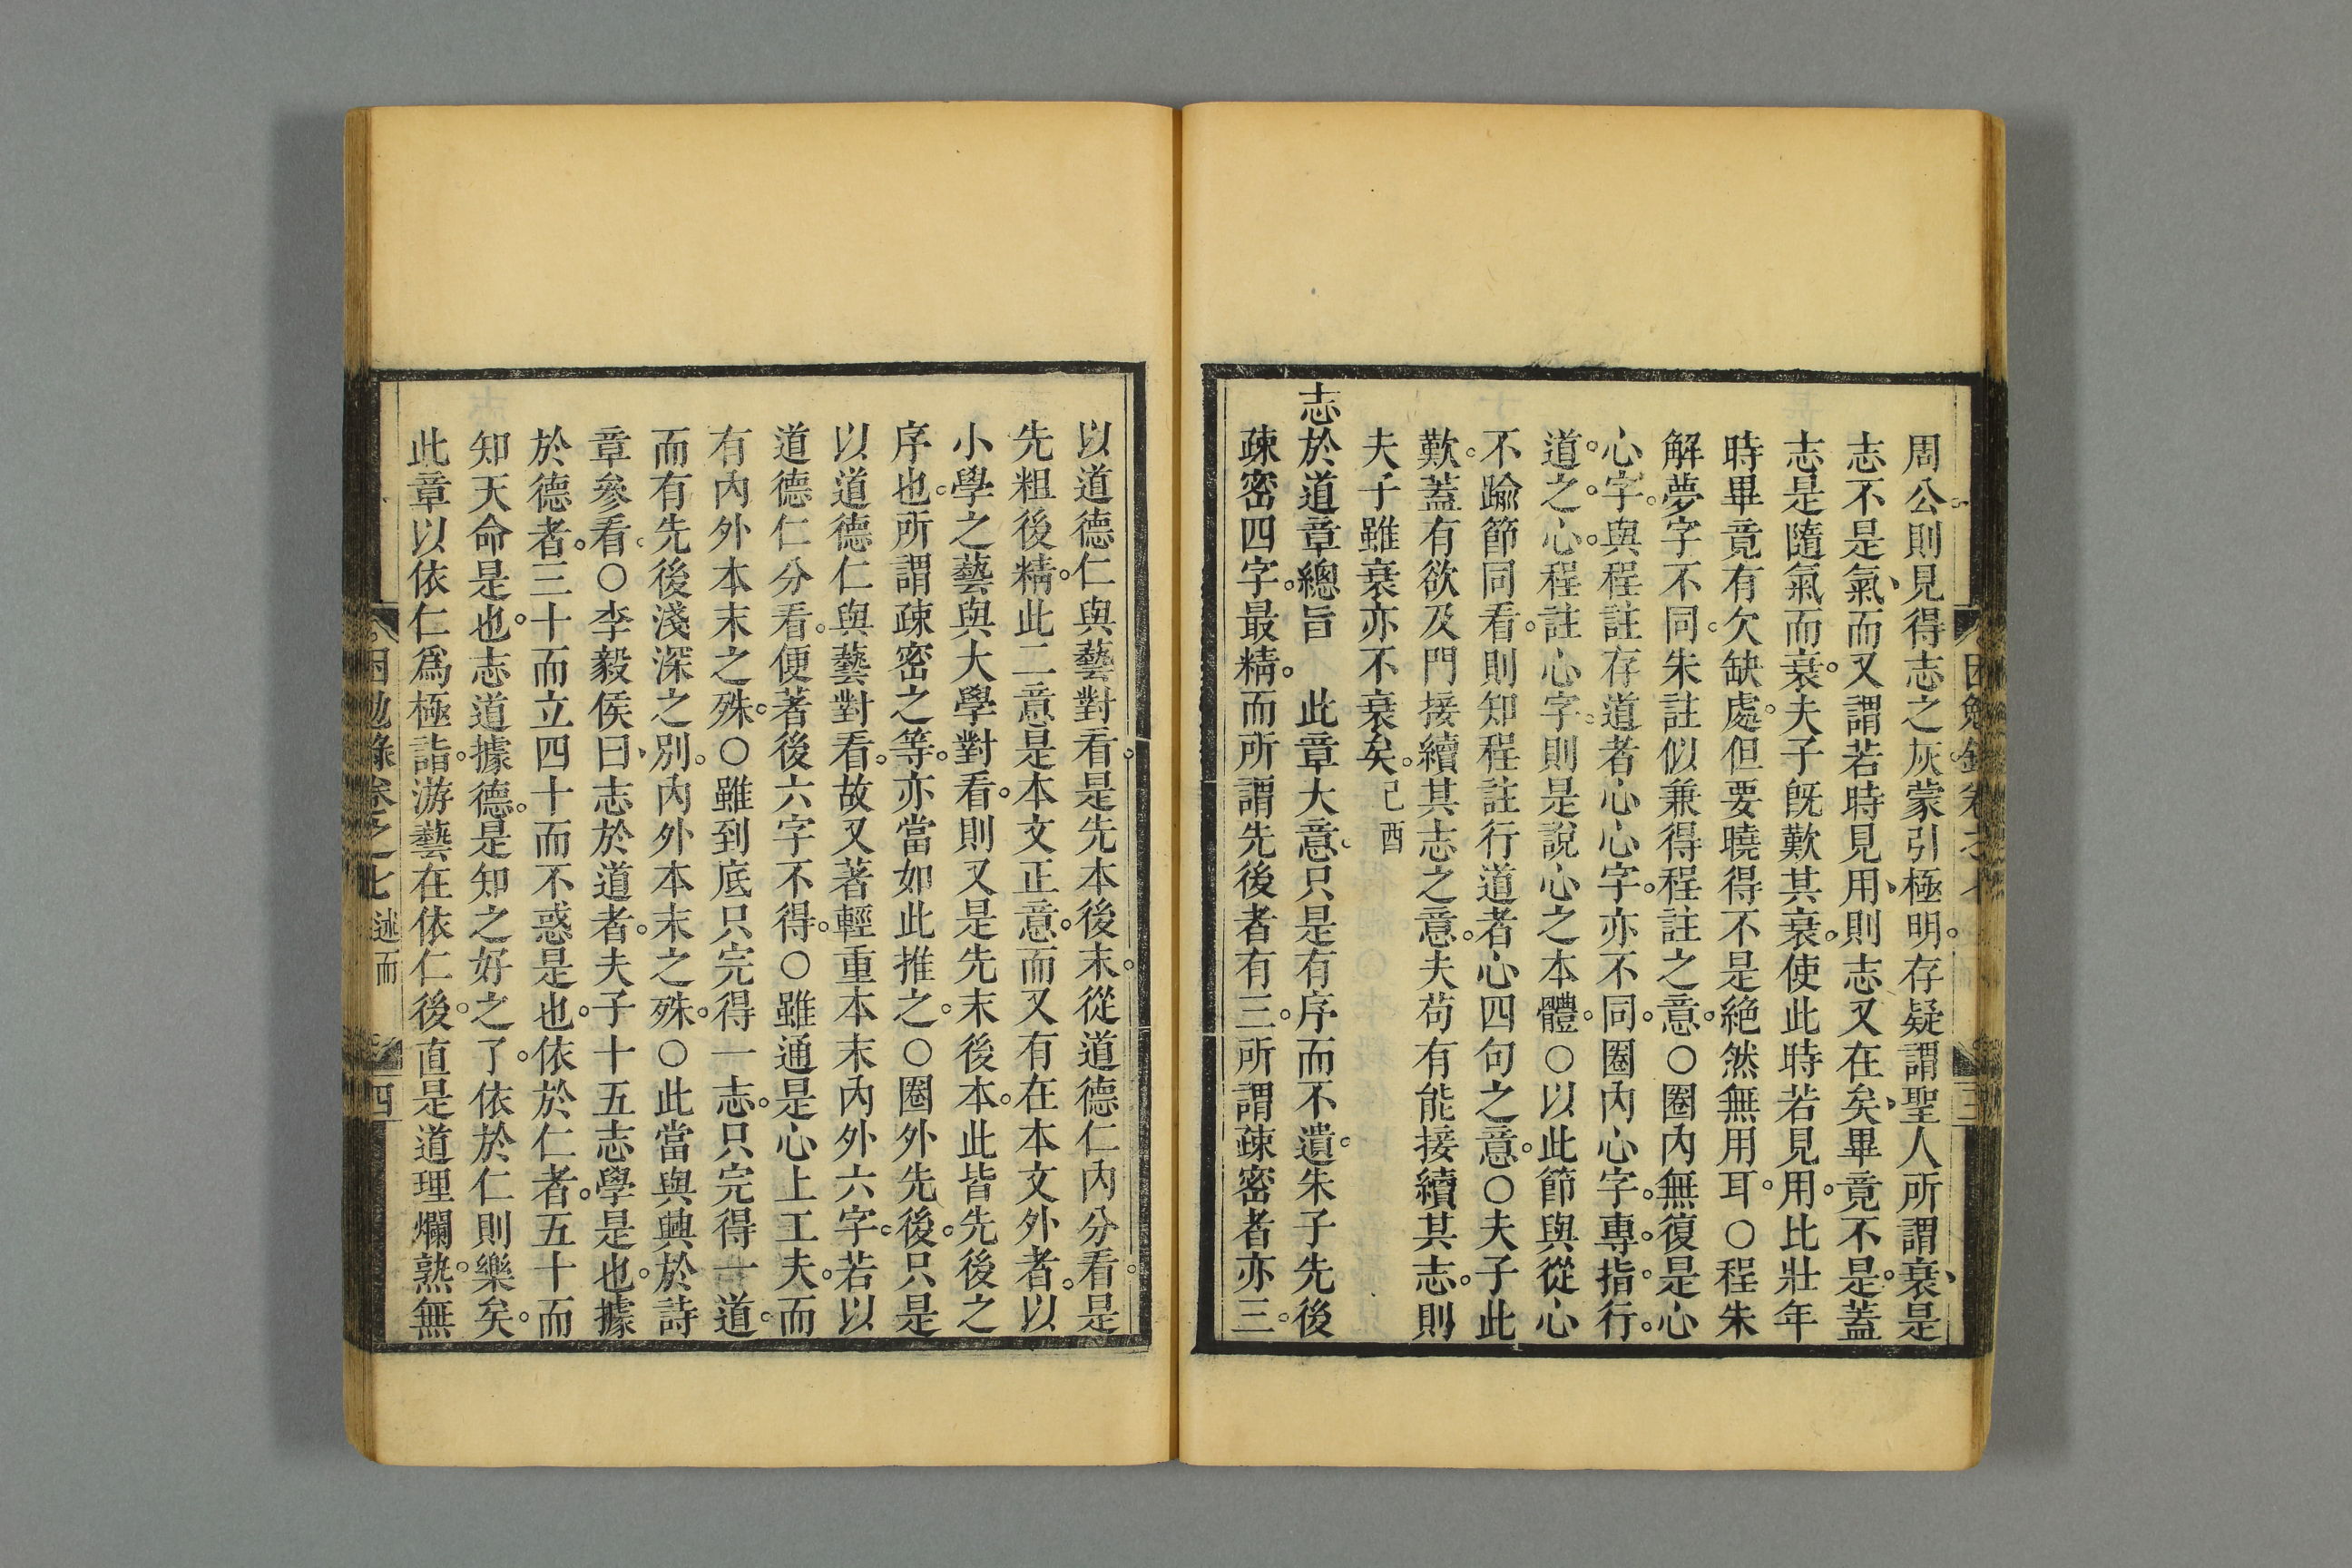 周公則見得志之灰蒙引極明。存疑謂聖人所謂衰、是
志不是氣、而又謂若時見用、則志又在矣、畢竟不是。蓋
志是隨氣而衰。夫子旣歎其衰、使此時若見用。比壯年
時畢竟有欠缺處。但要曉得不是絶然無用耳。○程朱
解夢字不同。朱註似兼得程註之意。○圈內無復是心
心字。與程註存道者心心字。亦不同。圈內心字。專。指。行。
道。之。心。程註心字。則是說心之本體。○以此節與從心
不踰節同看。則知程註行道者心四句之意。○夫子此
歎。蓋有欲及門接續其志之意。夫苟有能接續其志。則
夫子雖衰亦不衰矣。己酉
志於道章總旨　此章大意。只是有序而不遺。朱子先後
疎密四字。最精。而所謂先後者有三。所謂疎密者亦三。
以道德仁與藝對看。是先本後末。從道德仁內分看。是
先粗後精。此二意是本文正意。而又有在本文外者。以
小學之藝與大學對看。則又是先末後本。此皆先後之
序也。所謂疎密之等。亦當如此推之。○圈外先後。只是
以道德仁與藝對看。故又著輕重本末內外六字。若以
道德仁分看。便著後六字不得。○雖通是心上工夫。而
有內外本末之殊。○雖到底只完得一志。只完得一道。
而有先後淺深之別。內外本末之殊。○此當與興於詩
章參看。○李毅侯曰、志於道者。夫子十五志學是也。據
於德者。三十而立四十而不惑是也。依於仁者。五十而
知天命是也。志道據德。是知之好之了。依於仁則樂矣。
此章以依仁爲極詣。游藝在依仁後。直是道理爛熟。無
困勉錄卷之七　述而　四